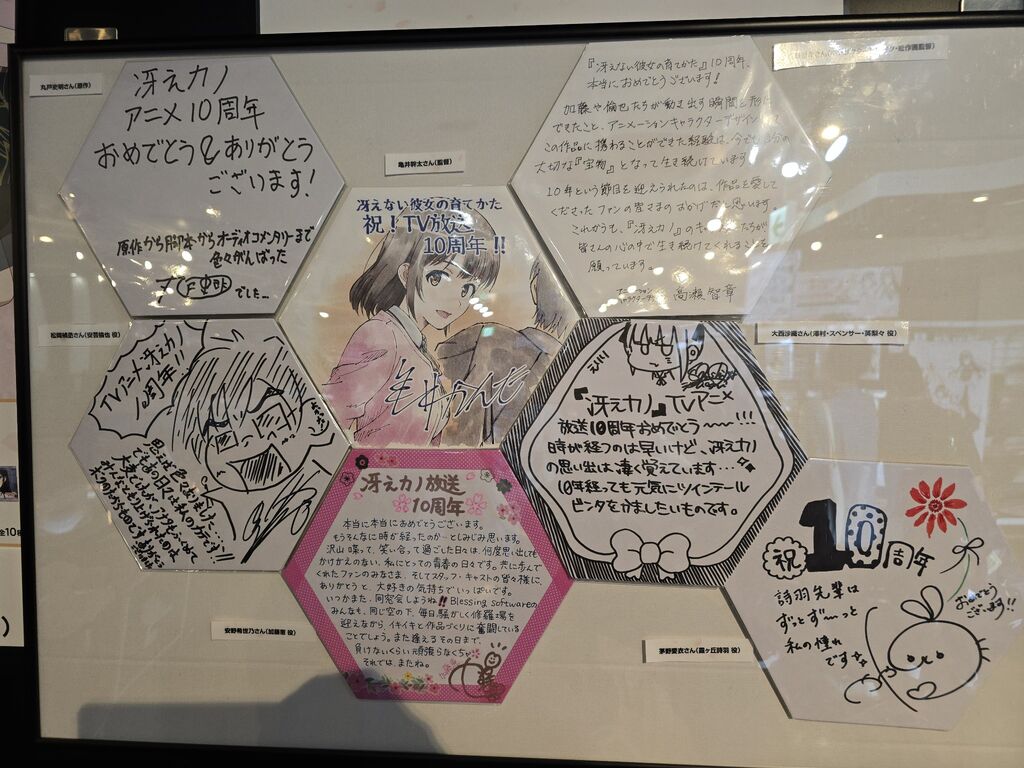 丸戸史明さん(原作)
冴えカノ
アニメ10周年
おめでとう&ありがとう
ございます!
原作から脚本からオーディオコメンタリーまで
色々がんばった
でした…
亀井幹太さん(監督)
冴えない彼女の育てかた
祝!TV放送
10周年!!
『冴えない彼女の育てかた』10周年、
本当におめでとうございます!
加藤や倫也たちが動き出す瞬間を形に
できたこと、アニメーションキャラクターデザインとして
この作品に携わることができた経験は、今でも自分の
大切な『宝物』となって生き続けています。
10年という節目を迎えられたのは、作品を愛して
くださったファンの皆さまのおかげだと思います。
これからも、『冴えカノ』のキャラたちが
皆さんの心の中で生き続けてくれることを
願っています。
高瀬智章
松岡禎丞さん(安芸倫也 役)
TVアニメ冴えカノ
10周年!!
大西沙織さん(澤村・スペンサー・英梨々 役)
『冴えカノ』TVアニメ
放送10周年おめでとう〜〜!!!
時が経つのは早いけど、冴えカノ
の思い出は、凄く覚えています…
10年経っても元気にツインテール
ビンタをかましたいものです。
安野希世乃さん(加藤恵 役)
冴えカノ放送
10周年
本当に本当におめでとうございます。
もうそんなに時が経ったのか…としみじみ思います。
沢山喋って、笑い合って過ごした日々は、何度思い出しても
かけがえのない、私にとっての青春の日々です。共に歩んで
くれたファンのみなさま、そしてスタッフ・キャストの皆々様に、
ありがとうと、大好きの気持ちでいっぱいです。
いつかまた、同窓会しようね!! Blessing softwareの
みんなも、同じ空の下、毎日騒がしく修羅場を
迎えながら、イキイキと作品づくりに奮闘している
ことでしょう。また逢えるその日まで、
負けないくらい頑張らなくちゃ。
それでは、またね。
茅野愛衣さん(霞ヶ丘詩羽 役)
祝10周年
詩羽先輩は
ずっとず〜っと
私の憧れ
です
おめでとう
ございます!!